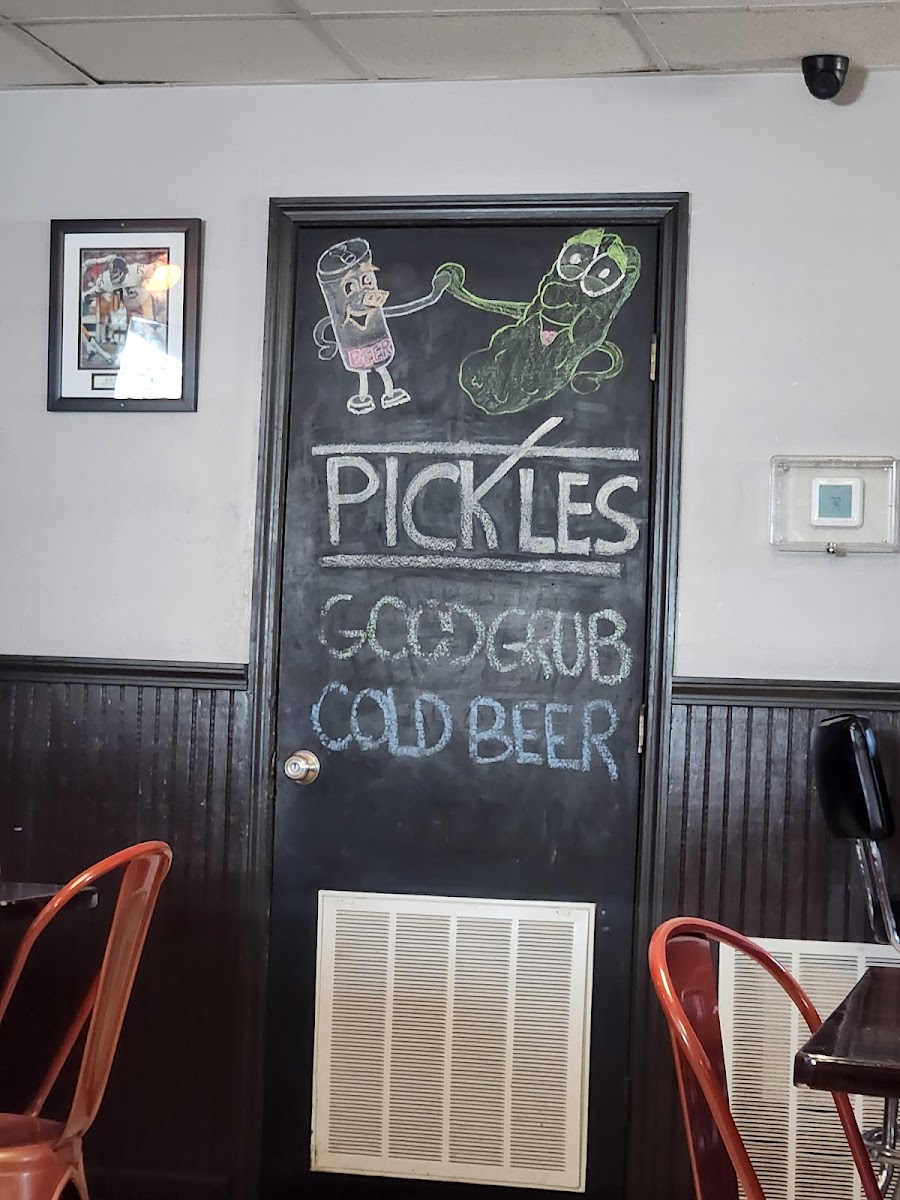 BEER
PICKLES
GOOD GRUB
COLD BEER